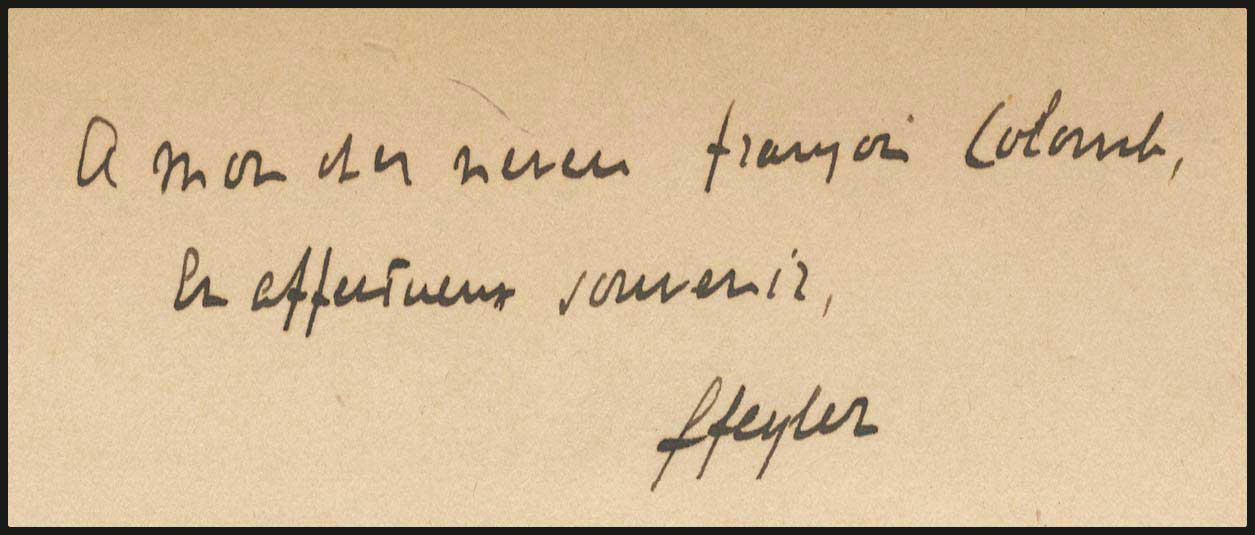 A mon cher neveu François Colomb,
En affectueux souvenir,
ffeyler